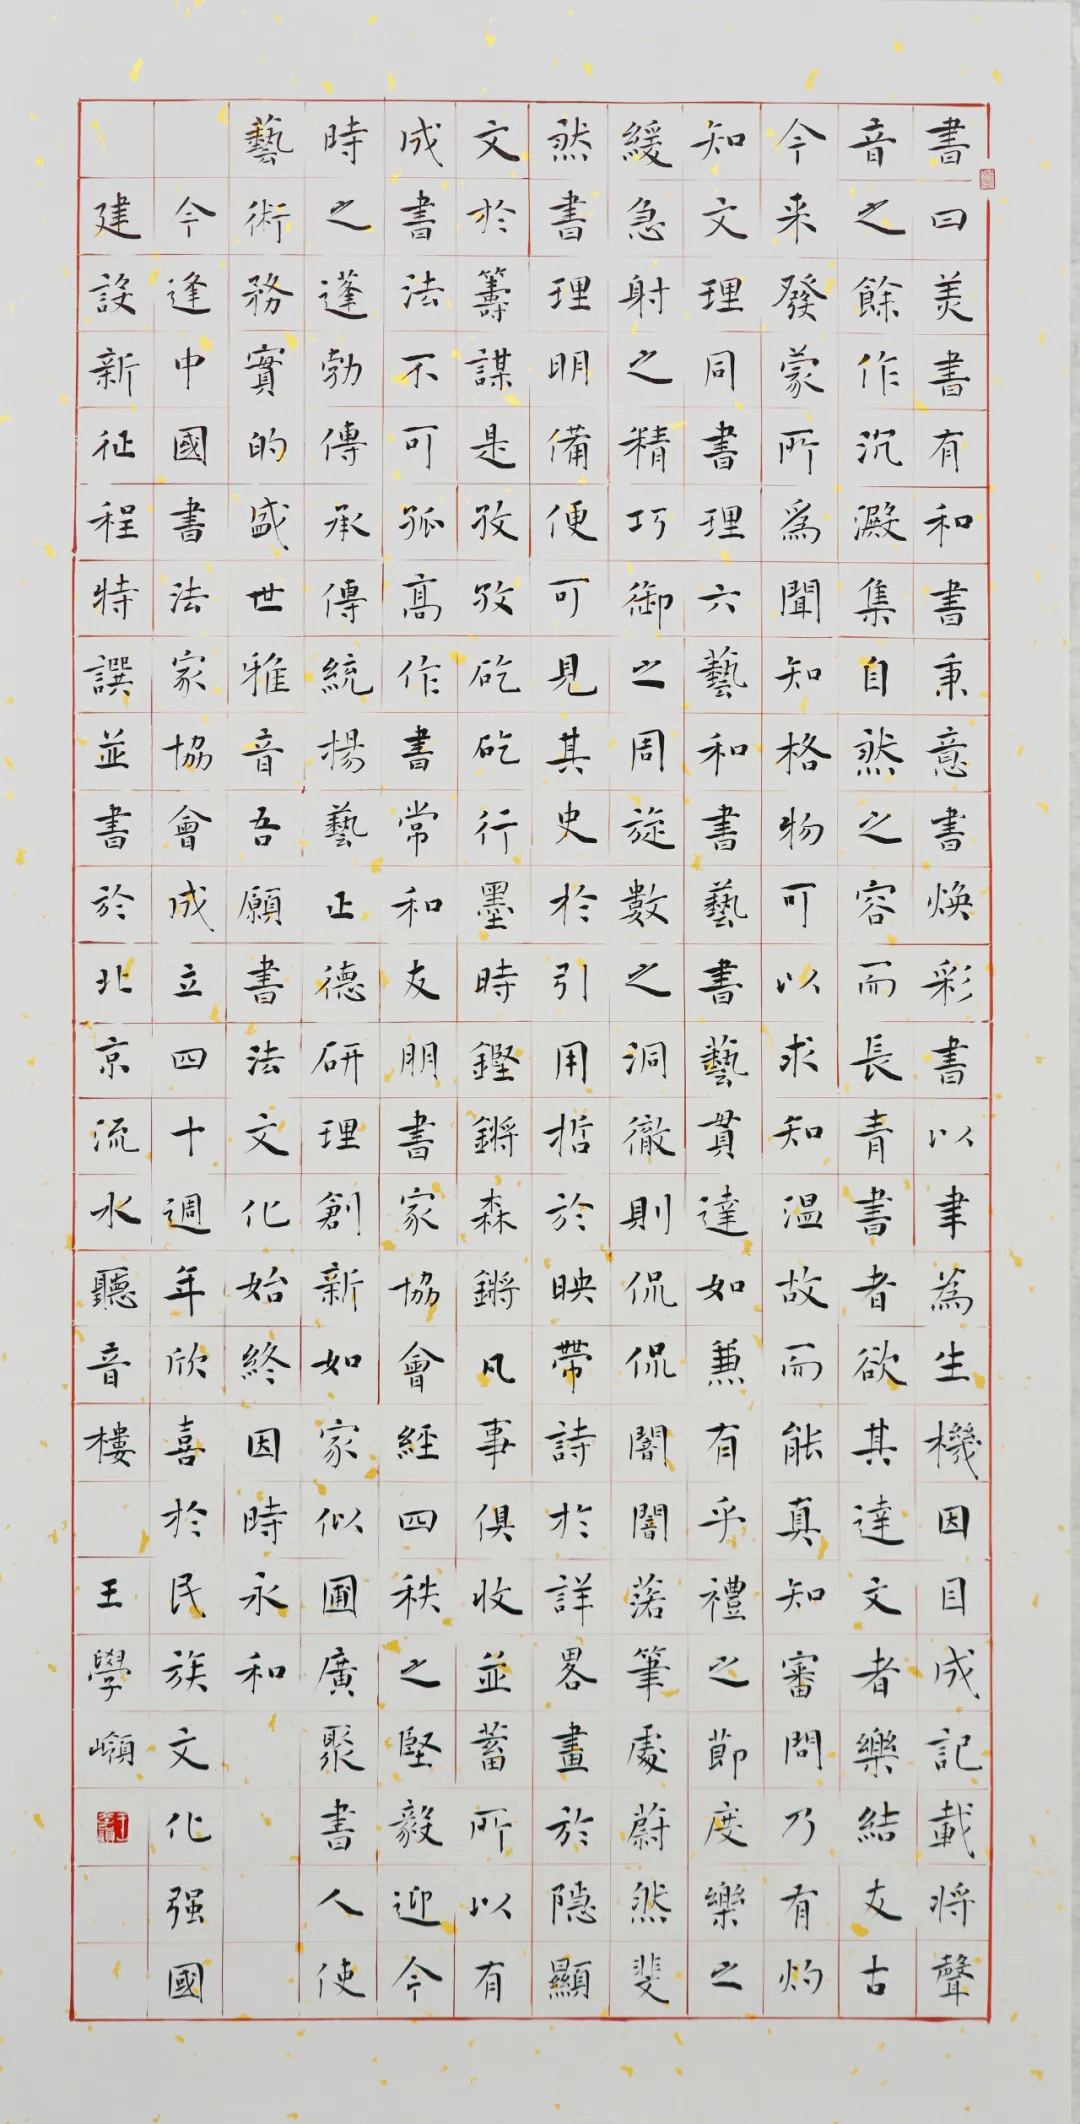 書曰美書有和書秉意書焕彩書以聿為生機因目成記載将聲
音之餘作沉澱集自然之容而長青書者欲其達文者樂結友古
今来發蒙所為聞知格物可以求知温故而能真知審問乃有灼
知文理同書理六藝和書藝書藝貫達如兼有乎禮之節度樂之
緩急射之精巧御之周旋數之洞徹則侃侃闇闇落筆處蔚然斐
然書理明備便可見其史於引用哲於映帶詩於詳畧畫於隱顯
文於籌謀是孜孜矻矻行墨時鏗鏘森鏘凡事俱收並蓄所以有
成書法不可孤高作書常和友朋書家協會經四秩之堅毅迎今
時之蓬勃傳承傳統揚藝正德研理創新如家似圃廣聚書人使
藝術務實的盛世雅音吾願書法文化始終因時永和
今逢中國書法家協會成立四十週年欣喜於民族文化强國
建設新征程特譔並書於北京流水聽音樓 王學嶺